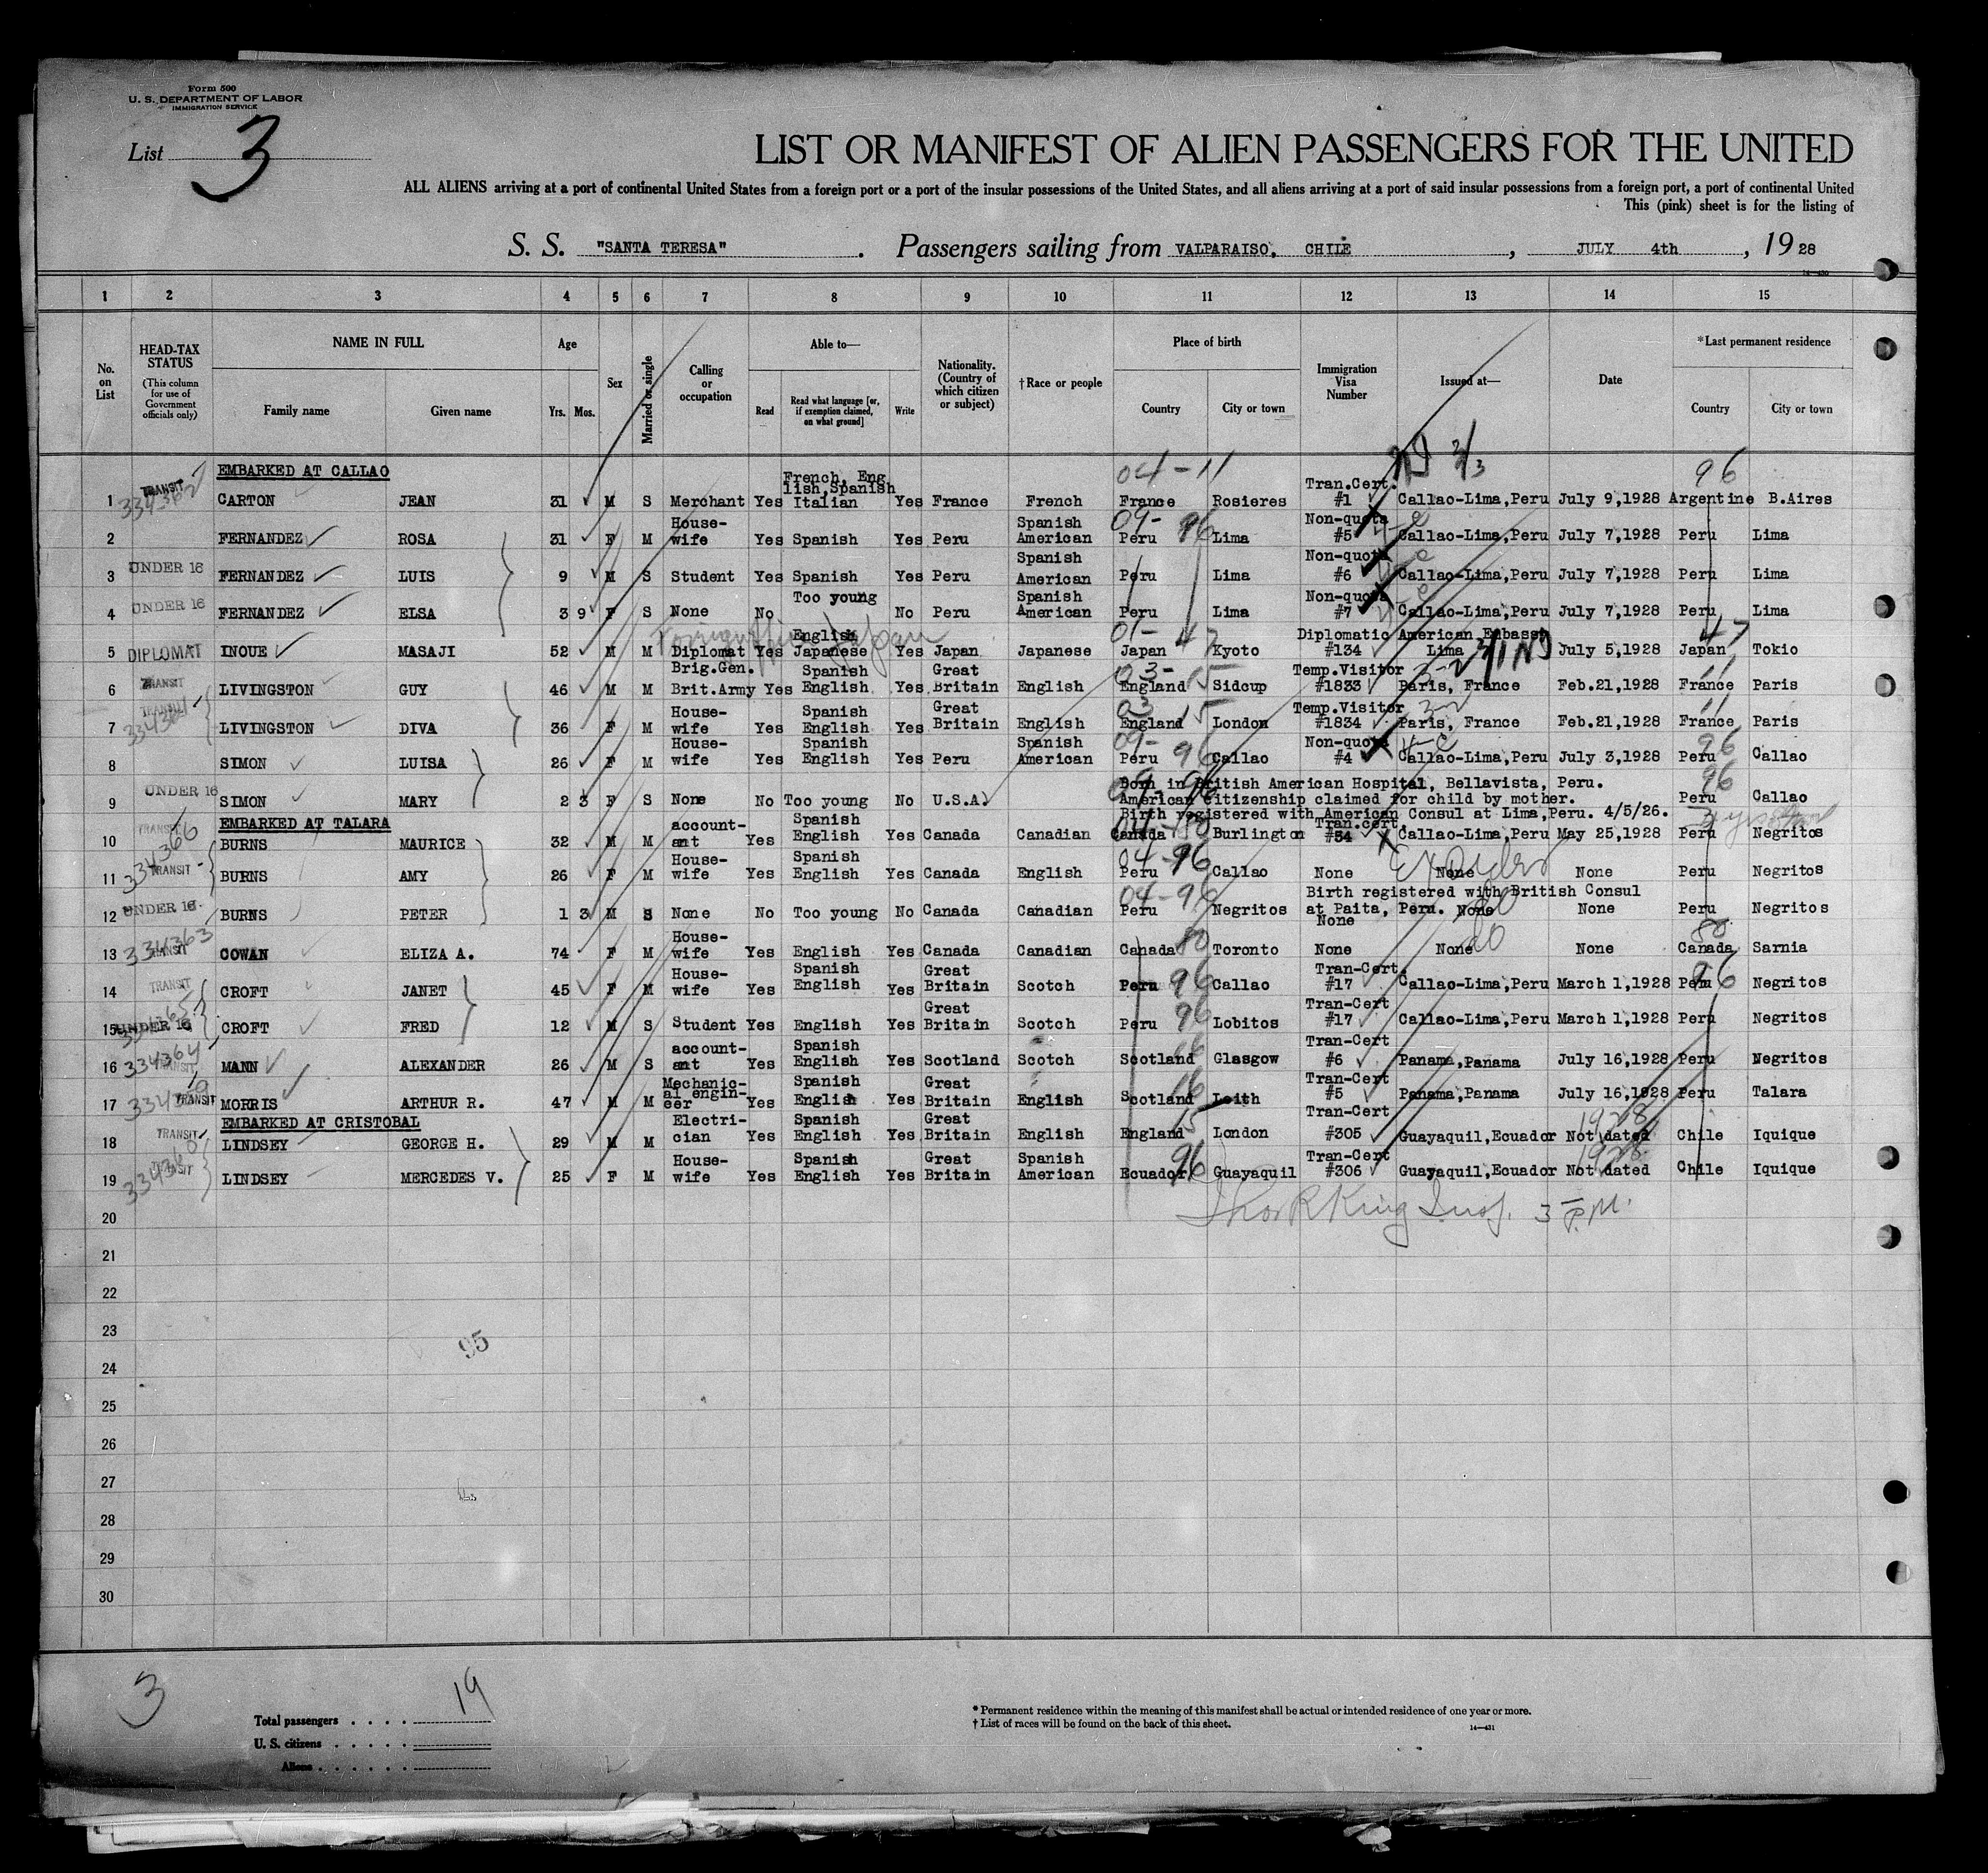 Form 500
U. S. DEPARTMENT OF LABOR
IMMIGRATION SERVICE
List 3
LIST OR MANIFEST OF ALIEN PASSENGERS FOR THE UNITED
ALL ALIENS arriving at a port of continental United States from a foreign port or a port of the insular possessions of the United States, and all aliens arriving at a port of said insular possessions from a foreign port, a port of continental United
This (pink) sheet is for the listing of
S. S. "SANTA TERESA" . Passengers sailing from VALPARAISO, CHILE , JULY 4th , 19 28
14—430
1 2 3 4 5 6 7 8 9 10 11 12 13 14 15
No. on List
HEAD-TAX STATUS (This column for use of Government officials only)
NAME IN FULL Family name Given name
Age Yrs. Mos.
Sex
Married or single
Calling or occupation
Able to— Read Read what language [or, if exemption claimed, on what ground] Write
Nationality. (Country of which citizen or subject)
†Race or people
Place of birth Country City or town
Immigration Visa Number
Issued at—
Date
*Last permanent residence Country City or town
EMBARKED AT CALLAO
1 TRANSIT CARTON JEAN 31 M S Merchant Yes French, English,Spanish Italian Yes France French 04-11 France Rosieres Tran.Cert. #1 Callao-Lima,Peru July 9,1928 96 Argentine B.Aires
2 FERNANDEZ ROSA 31 F M House-wife Yes Spanish Yes Peru Spanish American 09-96 Peru Lima Non-quota #5 Callao-Lima,Peru July 7,1928 Peru Lima
3 UNDER 16 FERNANDEZ LUIS 9 M S Student Yes Spanish Yes Peru Spanish American Peru Lima Non-quota #6 Callao-Lima,Peru July 7,1928 Peru Lima
4 UNDER 16 FERNANDEZ ELSA 3 9 F S None No Too young No Peru Spanish American Peru Lima Non-quota #7 Callao-Lima,Peru July 7,1928 Peru Lima
5 DIPLOMAT INOUE MASAJI 52 M M Diplomat Yes English Japanese Yes Japan Japanese 01-47 Japan Kyoto Diplomatic #134 American Embassy Lima July 5,1928 47 Japan Tokio
6 TRANSIT LIVINGSTON GUY 46 M M Brig.Gen. Brit.Army Yes Spanish English Yes Great Britain English 03-15 England Sidcup Temp.Visitor #1833 3-2 Paris, France Feb.21,1928 11 France Paris
7 TRANSIT LIVINGSTON DIVA 36 F M House-wife Yes Spanish English Yes Great Britain English 03-15 England London Temp.Visitor #1834 3-2 Paris, France Feb.21,1928 11 France Paris
8 SIMON LUISA 26 F M House-wife Yes Spanish English Yes Peru Spanish American 09-96 Peru Callao Non-quota #4 Callao-Lima,Peru July 3,1928 96 Peru Callao
9 UNDER 16 SIMON MARY 2 3 F S None No Too young No U.S.A. Born in British American Hospital, Bellavista, Peru. American citizenship claimed for child by mother. Birth registered with American Consul at Lima,Peru. 4/5/26. 96 Peru Callao
EMBARKED AT TALARA
10 TRANSIT 334366 BURNS MAURICE 32 M M account-ant Yes Spanish English Yes Canada Canadian Canada Burlington Tran.cert. #54 Callao-Lima,Peru May 25,1928 Peru Negritos
11 TRANSIT BURNS AMY 26 F M House-wife Yes Spanish English Yes Canada English 04-96 Peru Callao None None None Peru Negritos
12 UNDER 16 BURNS PETER 1 3 M S None No Too young No Canada Canadian 04-96 Peru Negritos Birth registered with British Consul at Paita, Peru. None None Peru Negritos
13 334363 TRANSIT COWAN ELIZA A. 74 F M House-wife Yes English Yes Canada Canadian Canada 80 Toronto None None None do None 80 Canada Sarnia
14 TRANSIT CROFT JANET 45 F M House-wife Yes Spanish English Yes Great Britain Scotch Peru 96 Callao Tran-Cert. #17 Callao-Lima,Peru March 1,1928 96 Peru Negritos
15 UNDER 16 CROFT FRED 12 M S Student Yes English Yes Great Britain Scotch Peru 96 Lobitos Tran-Cert #17 Callao-Lima,Peru March 1,1928 Peru Negritos
16 334364 TRANSIT MANN ALEXANDER 26 M S account-ant Yes Spanish English Yes Scotland Scotch Scotland 16 Glasgow Tran-Cert #6 Panama,Panama July 16,1928 Peru Negritos
17 TRANSIT MORRIS ARTHUR R. 47 M M Mechanic-al engin-eer Yes Spanish English Yes Great Britain English Scotland 16 Leith Tran-Cert #5 Panama,Panama July 16,1928 Peru Talara
EMBARKED AT CRISTOBAL
18 TRANSIT LINDSEY GEORGE H. 29 M M Electri-cian Yes Spanish English Yes Great Britain English England 15 London Tran-Cert #305 Guayaquil,Ecuador Not dated 1928 Chile Iquique
19 334360 TRANSIT LINDSEY MERCEDES V. 25 F M House-wife Yes Spanish English Yes Great Britain Spanish American Ecuador 96 Guayaquil Tran-Cert #306 Guayaquil,Ecuador Not dated 1928 Chile Iquique
20 King Insp. 3 P.M.
21
22
23
95
24
25
26
27
28
29
30
3
Total passengers . . . . 19
U. S. citizens . . . . .
Aliens . . . . . .
* Permanent residence within the meaning of this manifest shall be actual or intended residence of one year or more.
† List of races will be found on the back of this sheet.
14—431